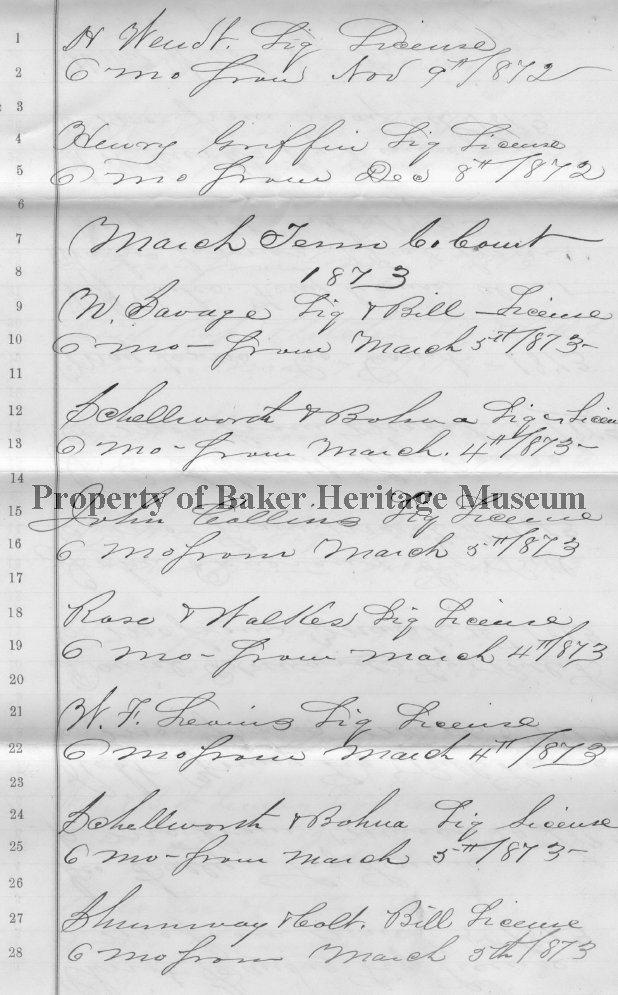 1 H Wendt. Liq License
2 6 mo from Nov 9th/1872
3
4 Henry Griffin Liq License
5 6 mo from Dec 8th/1872
6
7 March Term Co. Court
8 1873
9 W. Savage Liq & Bill - License
10 6 mo - from March 5th/1873-
11
12 Schellworth & Bohna Liq License
13 6 mo - from March. 4th/1873-
14
Property of Baker Heritage Museum
15 John Collins Liq License
16 6 mo from March 5th/1873
17
18 Rose & Walker Liq License
19 6 mo - from March 4th/1873
20
21 W. F. Levins Liq License
22 6 mo from March 4th/1873
23
24 Schellworth & Bohna Liq License
25 6 mo - from March 5th/1873-
26
27 Shumway & Colt. Bill License
28 6 mo from March 5th/1873